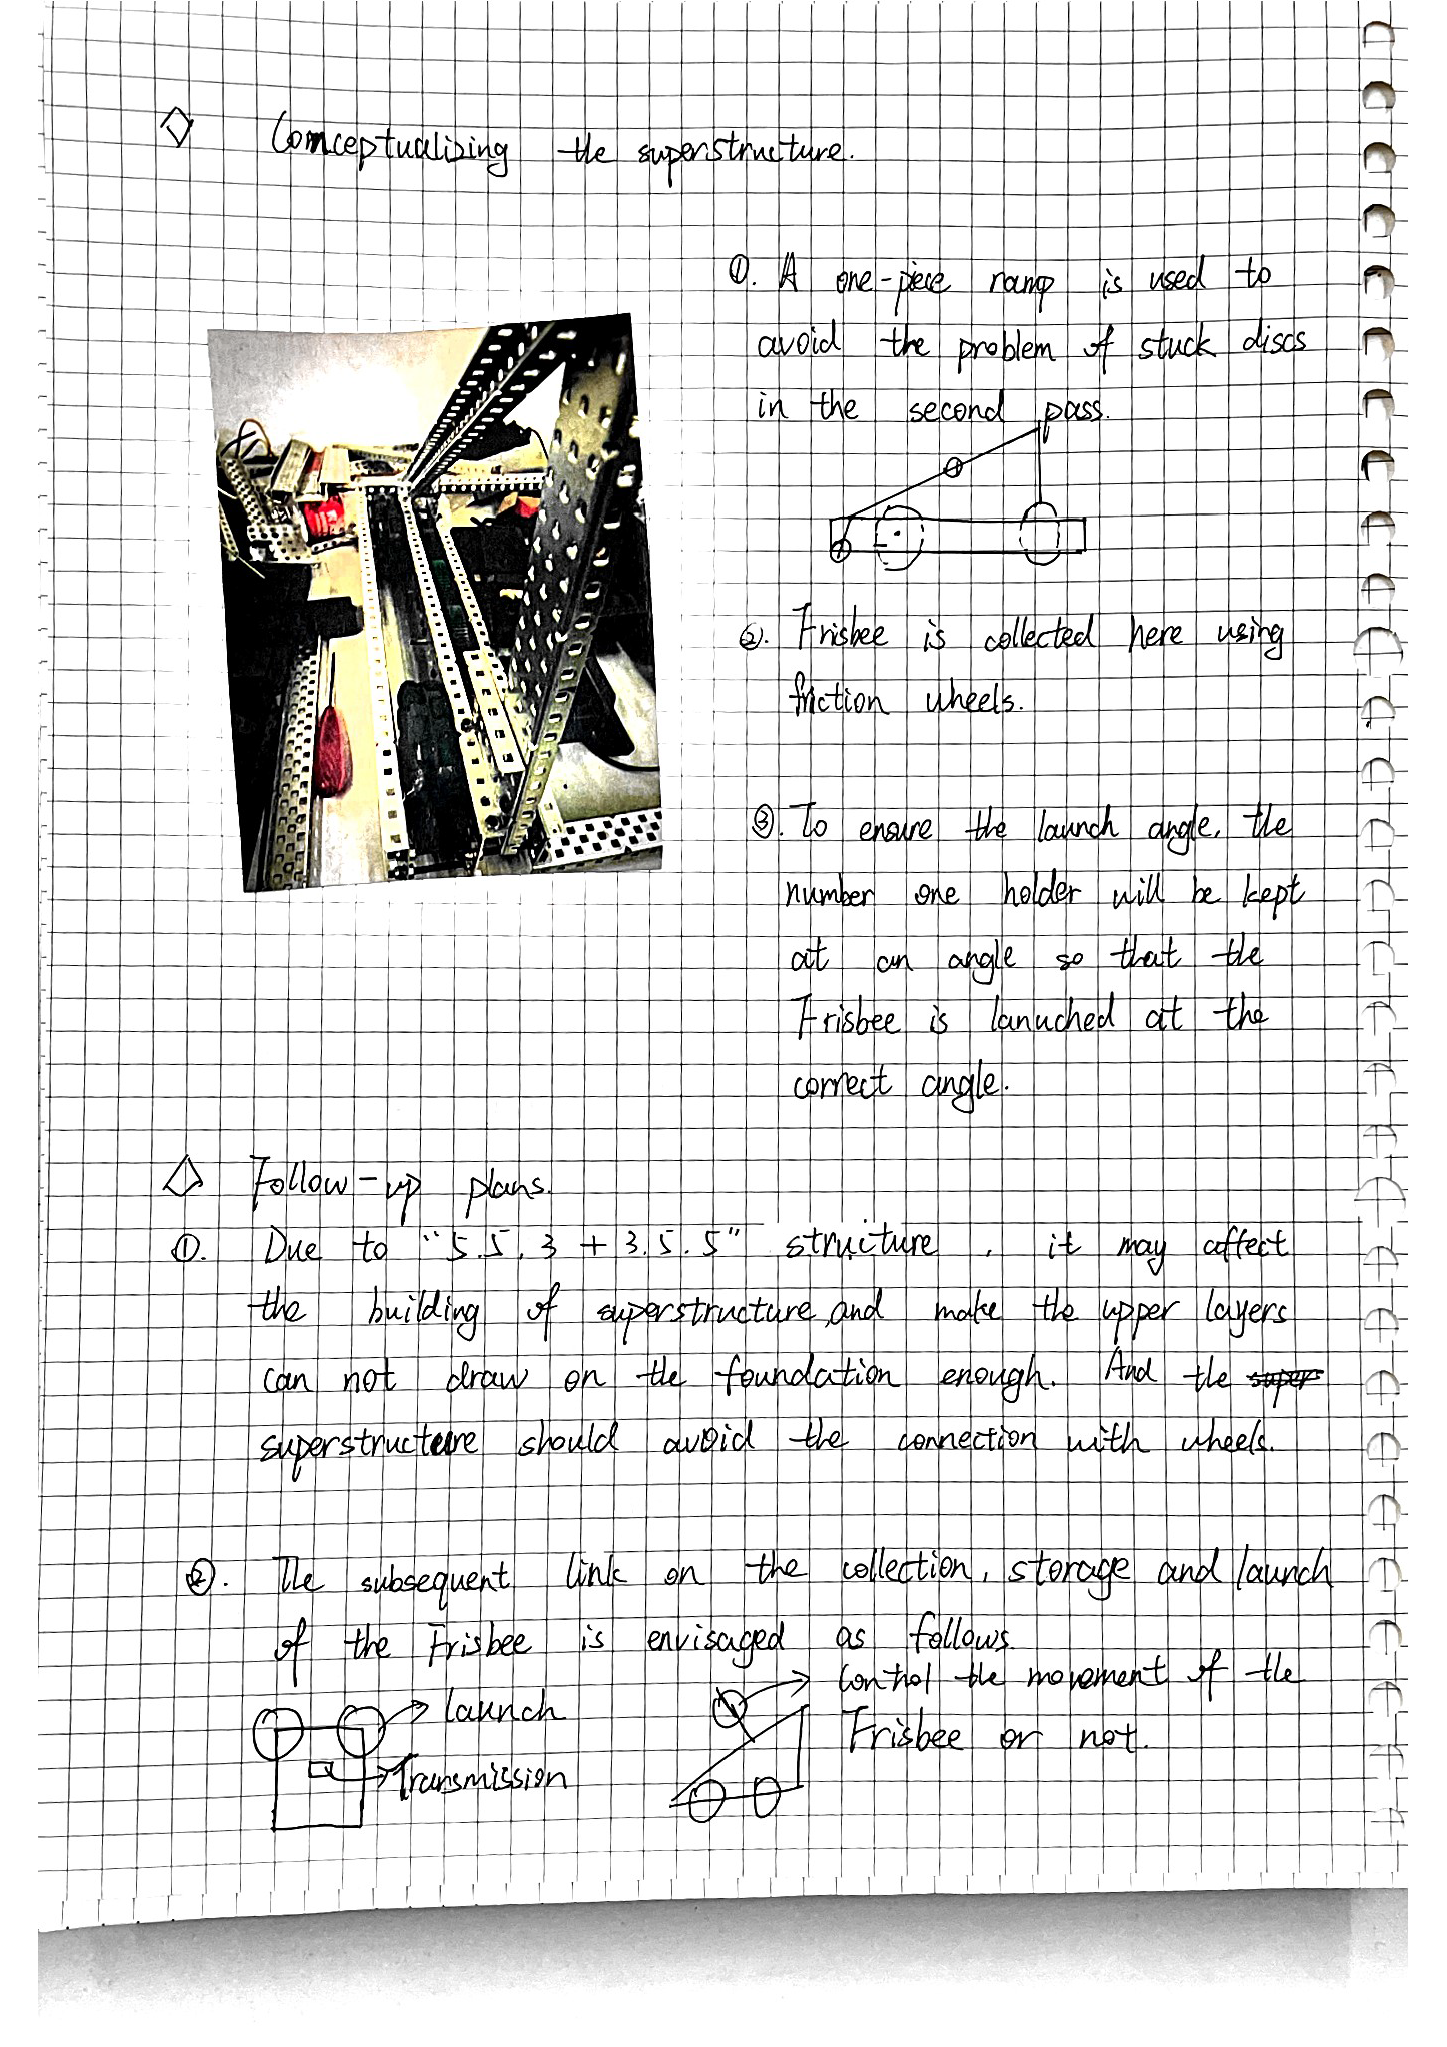 Conceptualizing the superstructure.
①. A one-piece ramp is used to
avoid the problem of stuck discs
in the second pass.
②. Frisbee is collected here using
friction wheels.
③. To ensure the launch angle, the
number one holder will be kept
at an angle so that the
Frisbee is lanuched at the
correct angle.
Follow-up plans.
①. Due to "5.5.3 + 3.5.5" structure, it may affect
the building of superstructure, and make the upper layers
can not draw on the foundation enough. And the super
superstructure should avoid the connection with wheels.
②. The subsequent link on the collection, storage and launch
of the Frisbee is envisaged as follows.
Control the movement of the
Frisbee or not.
launch
Transmission